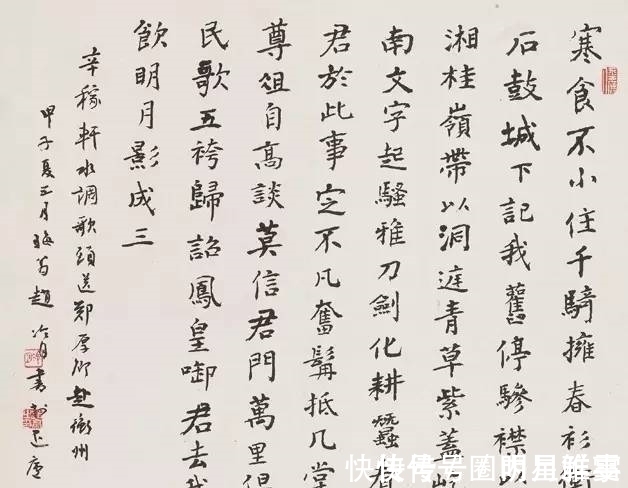 寒食不小住千騎擁春衫衡
石鼓城下記我舊停驂襟以
湘桂嶺帶以洞庭青草紫蓋屹
南文字起騷雅刀劍化耕蠶看
君於此事定不凡奮髯抵几堂
尊俎自高談莫信君門萬里但
民歌五袴歸詔鳳皇啣君去我
飲明月影成三
辛稼軒水調歌頭送鄭厚卿赴衡州
甲子夏五月趙冷月書